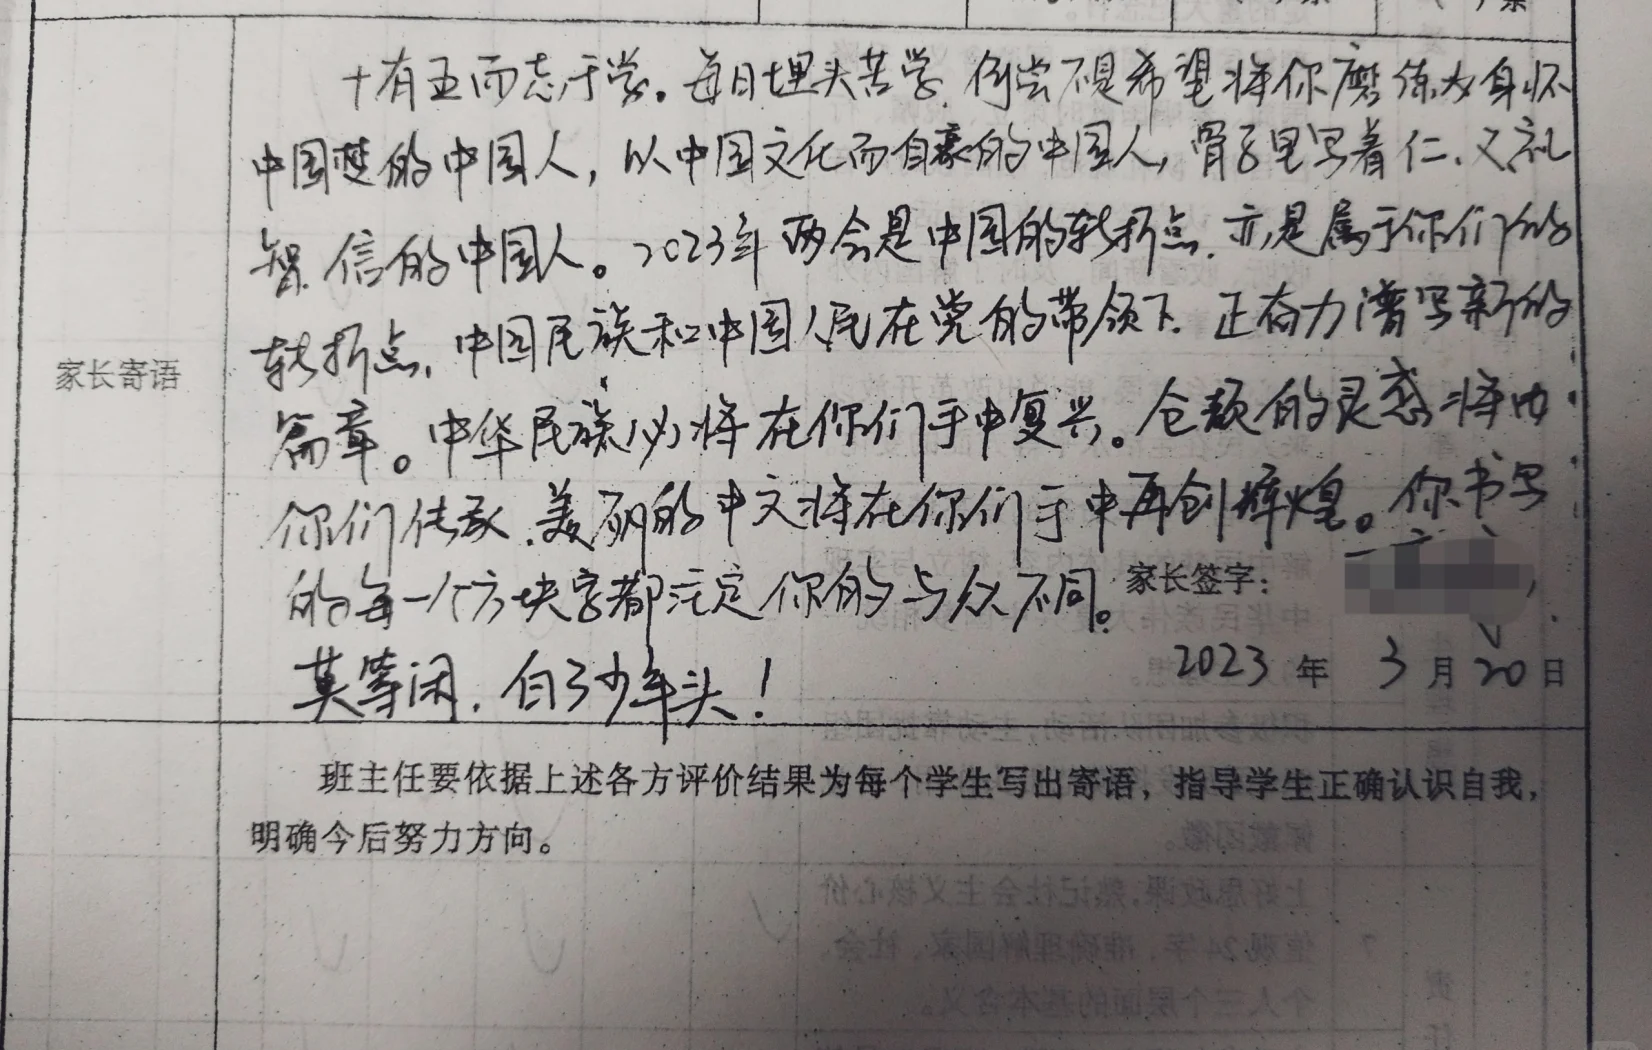 十有五而志于学。每日埋头苦学,何尝不是希望将你磨练为身怀
中国梦的中国人,以中国文化而自豪的中国人,骨子里写着仁、义、礼
智、信的中国人。2023年两会是中国的转折点,亦是属于你们的
转折点,中国民族和中国人民在党的带领下,正奋力谱写新的
家长寄语
篇章。中华民族必将在你们手中复兴。仓颉的灵感将由
你们传承,美丽的中文将在你们手中再创辉煌。你书写
的每一个方块字都注定你的与众不同。
家长签字:
莫等闲,白了少年头!
2023 年 3 月 20 日
班主任要依据上述各方评价结果为每个学生写出寄语,指导学生正确认识自我,
明确今后努力方向。